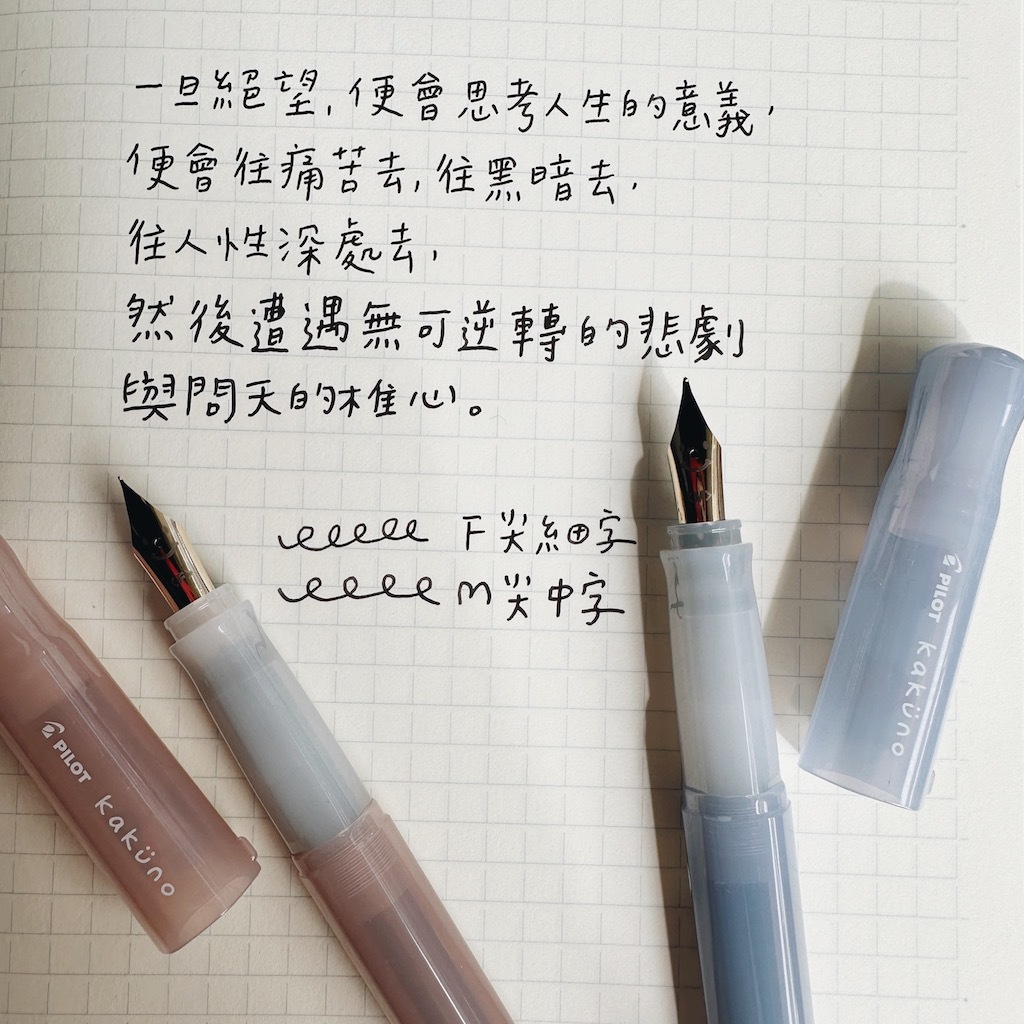 一旦絕望,便會思考人生的意義,
便會往痛苦去,往黑暗去,
往人性深處去,
然後遭遇無可逆轉的悲劇
與問天的雄心。
F尖細字
M尖中字
PILOT kaküno
PILOT kaküno